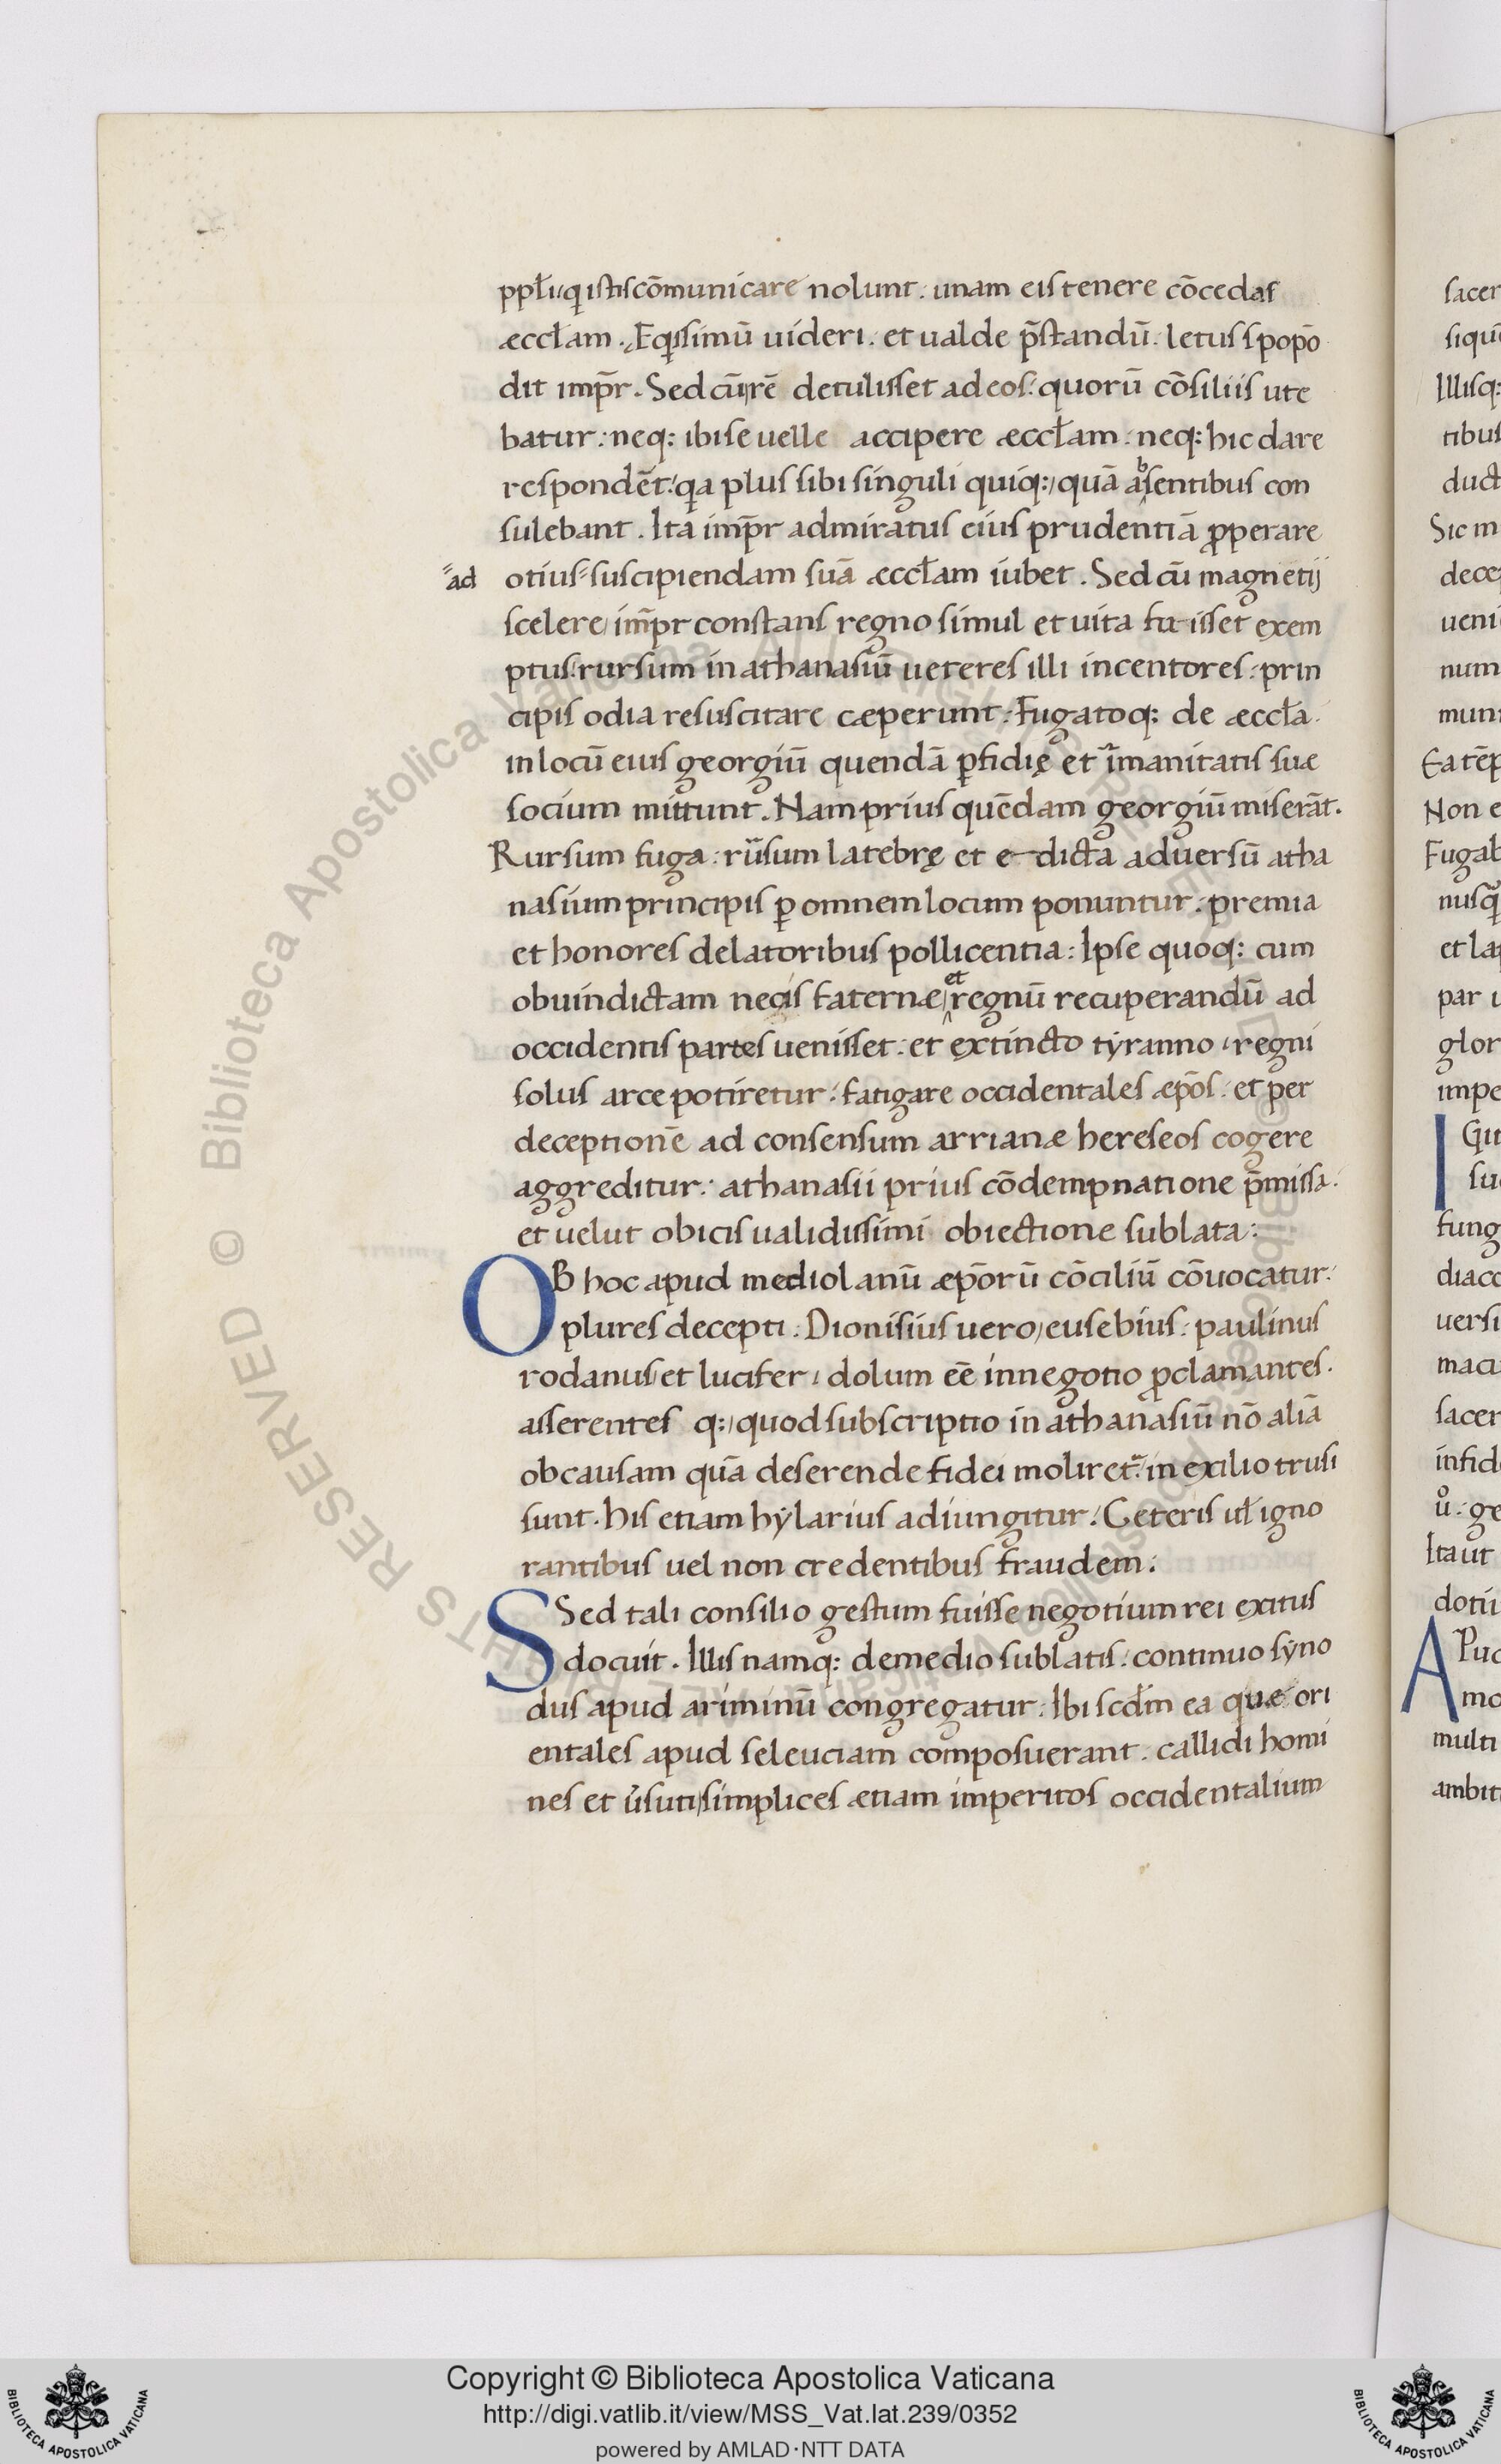 ppłi qͥ istis cōmunicare nolunt. unam eis tenere cōcedas
æccłam. Eqͥssimū uideri. et ualde p̄standū. letus spopō
dit imp̄r. Sed cū rē detulisset ad eos. quorū cōsiliis ute
batur: neq; ibi se uelle accipere æccłam. neq; hic dare
respondēt. qͥa plus sibi singuli quiq; quā absentibus con
sulebant. Ita imp̄r admiratus eius prudentiā ꝓperare
ad otius suscipiendam suā æccłam iubet. Sed cū magnetij
scelere imp̄r constans regno simul et uita fuisset exem
ptus. rursum in athanasiū ueteres illi incentores. prin
cipis odia resuscitare cæperunt. Fugatoq; de æccła.
in locū eius georgiū quendā ꝑfidię et īmanitatis suæ
socium mittunt. Nam prius quēdam georgiū miserāt.
Rursum fuga: rursum latebrę et edicta aduersū atha
nasium principis ꝑ omnem locum ponuntur. premia
et honores delatoribus pollicentia: Ipse quoq; cum
ob uindictam necis faternæ et regnū recuperandū ad
occidentis partes uenisset. et extincto tyranno regni
solus arce potiretur. fatigare occidentales æp̄os. et per
deceptionē ad consensum arrianæ hereseos cogere
aggreditur. athanasii prius cōdempnatione p̄missa.
et uelut obicis ualidissimi obiectione sublata:
OB hoc apud mediolanū æp̄orū cōciliū cōuocatur.
plures decepti. Dionisius uero eusebius. paulinus
rodanus et lucifer dolum eē in negotio ꝓclamantes.
asserentes q; quod subscriptio in athanasiū nō aliā
ob causam quā deserende fidei moliret. in exilio trusi
sunt. his etiam hylarius adiungitur. Ceteris uł igno
rantibus uel non credentibus fraudem.
SSed tali consilio gestum fuisse negotium rei exitus
docuit. Illis namq; de medio sublatis. continuo syno
dus apud ariminū congregatur. Ibi scdm̄ ea quæ ori
entales apud seleuciam composuerant. callidi homi
nes et u̓suti simplices ætiam imperitos occidentalium
sacer
Illisq;
tibus
duct
Sic m
ueni
num
mun
Non e
Fugab
et la
par
glor
impe
IGit
su
fung
diaco
uersi
sacer
infid
Ita ut
APud
mo
multi
ambit
Biblioteca Apostolica Vaticana
ALL RIGHTS RESERVED
Copyright © Biblioteca Apostolica Vaticana
http://digi.vatlib.it/view/MSS_Vat.lat.239/0352
powered by AMLAD·NTT DATA
BIBLIOTECA APOSTOLICA VATICANA
BIBLIOTECA APOSTOLICA VATICANA